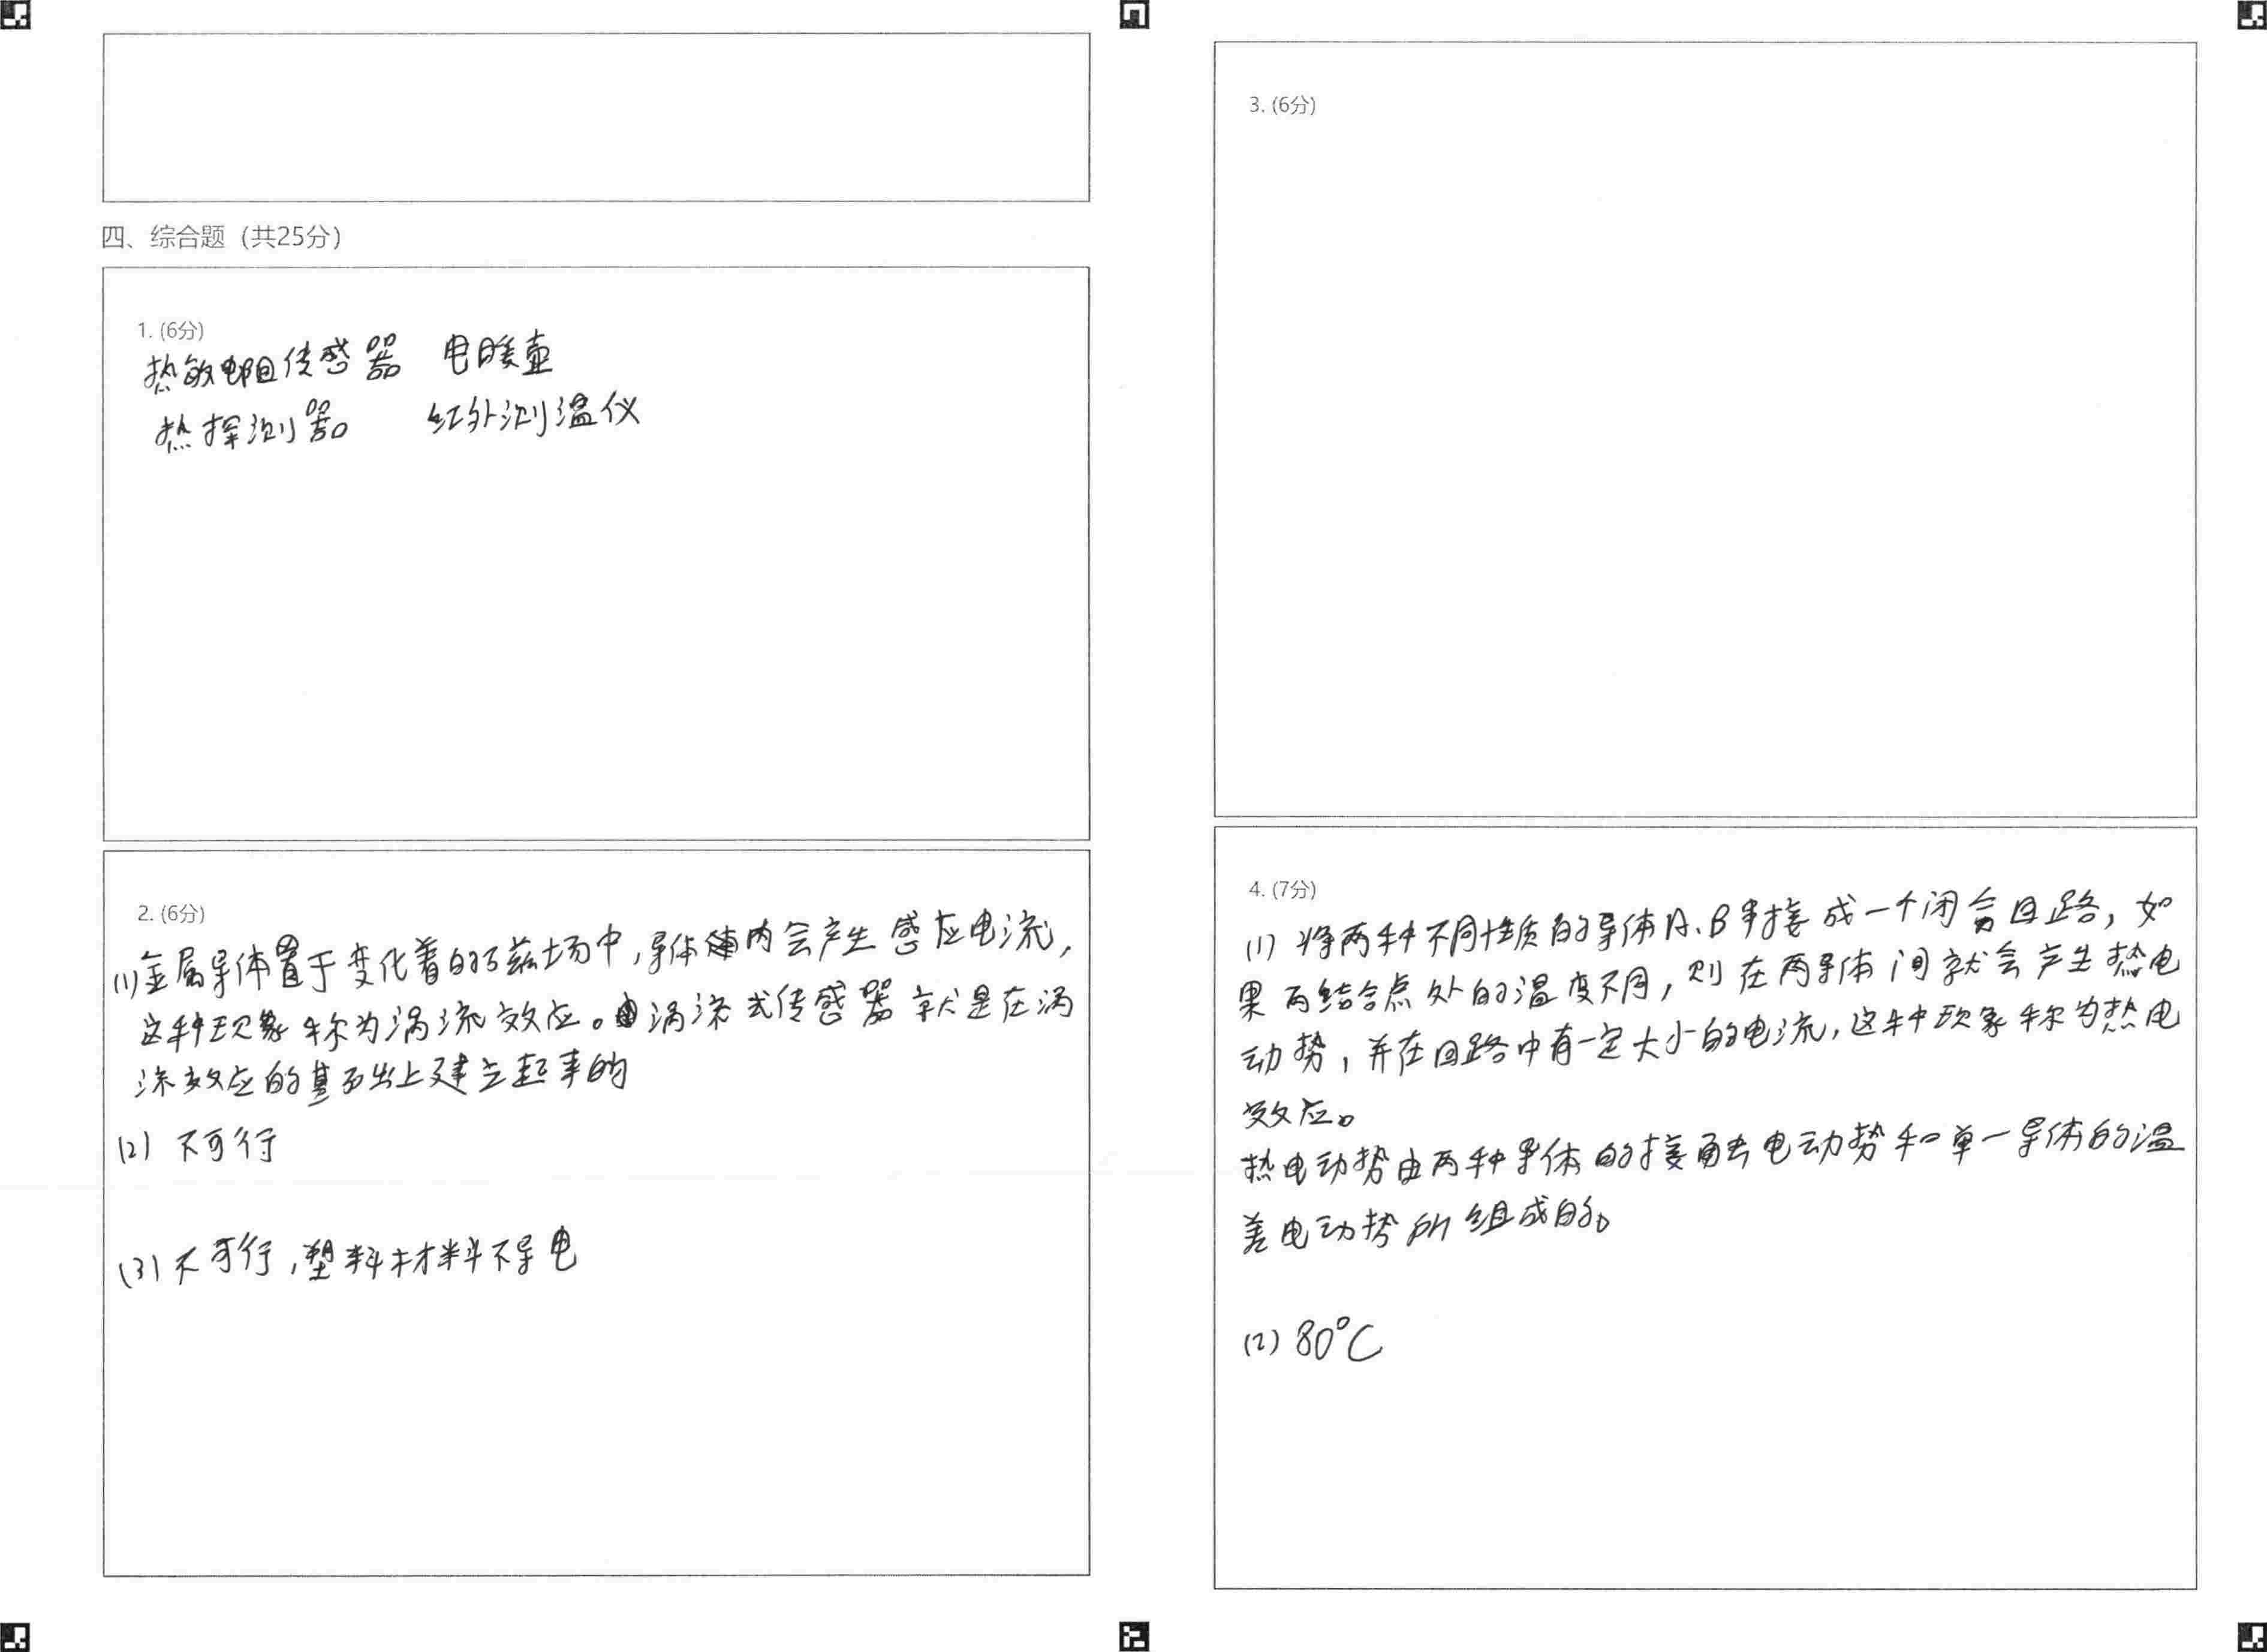 四、综合题（共25分）
1. (6分)
热敏电阻传感器 电暖壶
热探测器 红外测温仪
2. (6分)
(1)金属导体置于变化着的磁场中,导体内会产生感应电流,
这种现象称为涡流效应。涡流式传感器就是在涡
流效应的基础上建立起来的
(2) 不可行
(3) 不可行,塑料材料不导电
3. (6分)
4. (7分)
(1) 将两种不同性质的导体A、B串接成一个闭合回路,如
果两结合点处的温度不同,则在两导体间就会产生热电
动势,并在回路中有一定大小的电流,这种现象称为热电
效应。
热电动势由两种导体的接触电动势和单一导体的温
差电动势所组成的。
(2) 80°C